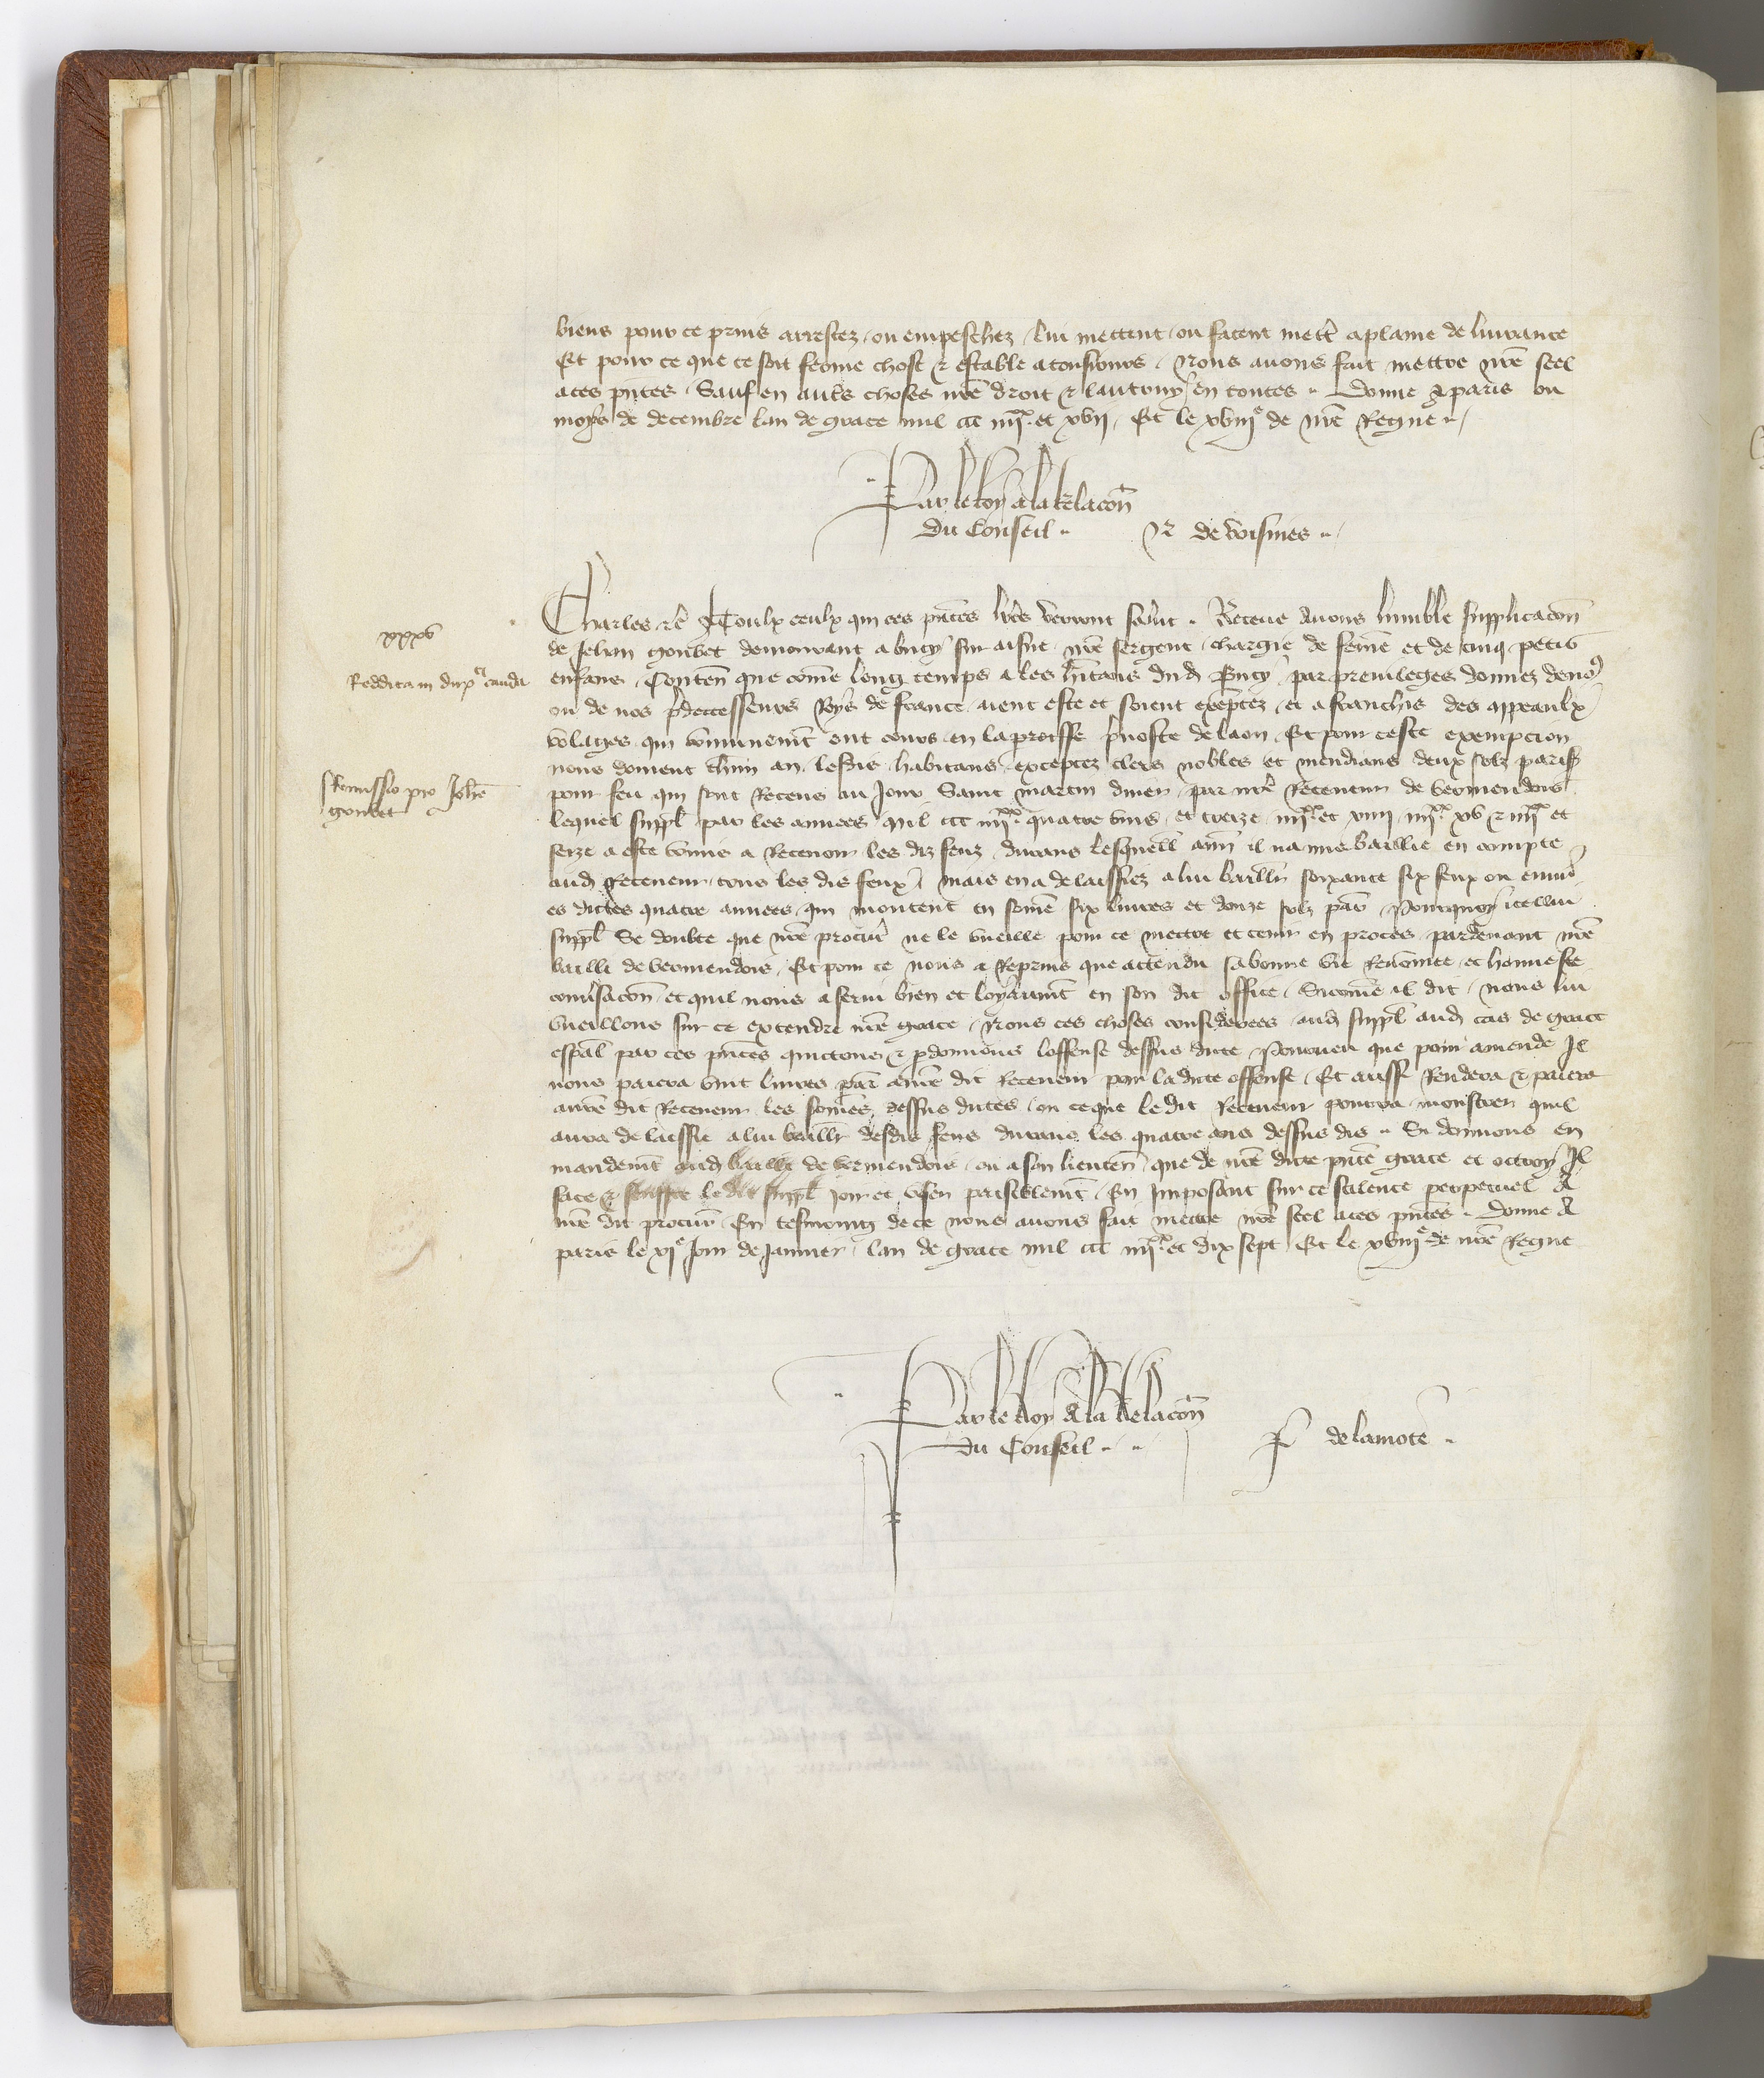 biens pour ce prins arrestez ou empeschez lui mettent ou facent mettre a plaine delivrance
Et pour ce que ce soit ferme chose & estable a tousiours. Nous avons fait mettre nr̃e seel
a ces pñtes. Sauf en autˢ choses nr̃e droit & lautruy en toutes. Donne a paris ou
moys de decembre lan de grace mil ccc iiijˣˣ. et xvij. Et le xviijᵉ de nr̃e Regne.
Par le Roy a la relacõn
du Conseil. de voisines.
Charles &c̃ A Toulx ceulx qui ces pñtes lr̃es verront salut. Receue avons lumble supplicacõn
xxxv
de Jehan goubet demourant a bucy sur aisne nr̃e sergent chargie de fem̃e et de cinq petis
Reddita in duplᶜⁱ cauda
enfans. Conteñ que com̃e long temps a les hĩtans dud Bucy par previleges donnez de noˢ
ou de nos p̃decesseurs Roys de france aient este et soient exẽptez et afranchis des appeaulx
volages qui com̃unem̃t ont cours en la p̃voste de laon. Et pour ceste exempcion
nous doivent chũn an lesdis habitans exceptez clers nobles et mendians deux solz parisˢ
Remissio pro Joh̃e
goubet
pour feu qui sont Receus au Jour Saint martin diver par nr̃e Receveur de vermendois.
lequel suppl̃ par les annees mil ccc iiijˣˣ. quatre vins et treze iiijˣˣ. et xiiij iiijˣˣ xv & iiijˣˣ et
seize a este com̃is a Recevoir les diz feuz durans lesquelˡ añn il na mie baillie en compte
aud Receveur tous les dis feux mais en a delaissiez a lui baillr̃ soixante six feux ou envir̃
es dictes quatre annees qui montent en som̃e six livres et douze solz par̃. Pourquoy icellui
suppl̃ se doubte que nr̃e procur̃ ne le vueille pour ce mettre et tenir en proces pardevant nr̃e
bailli de vermendois. Et pour ce nous a Requis que attendu sa bonne vie Renom̃ee et honneste
conv̾sacõn et quil nous a servi bien et loyaum̃t en son dit office Sicom̃e il dit nous lui
vueillons sur ce extendre nr̃e grace. Nous ces choses considerees aud suppl̃ aud cas de grace
esp̃al par ces pñtes quictons & p̱donnons loffense dessus dicte. Pourveu que pour amende Il
nous paiera vint livres par̃ a nr̃e dit Receveur pour ladicte offense. Et aussi Rendera & paiera
a nr̃e dit Receveur les som̃es dessus dictes ou ce que le dit Receveur pourra monstrer quil
aura delaissie a lui baillr̃ desdis feus durans les quatre ans dessus dis. Si donnons en
mandem̃t aud bailli de vermendois ou a son lieuteñ que de nr̃e dicte pñte grace et octroy Il
face & seuffre le dit suppl̃ joir et user paisiblem̃t. En Imposant sur ce scilence perpetuel a
nr̃e dit procur̃. En tesmoing de ce nous avons fait mettre nr̃e seel a ces pñtes. Donne a
paris le xjᵉ Jour de Janvier lan de grace mil ccc iiijˣˣ. et dix sept. Et le xviijᵉ de nr̃e Regne
Par le Roy a la Relacõn
du Conseil. P de la mote.